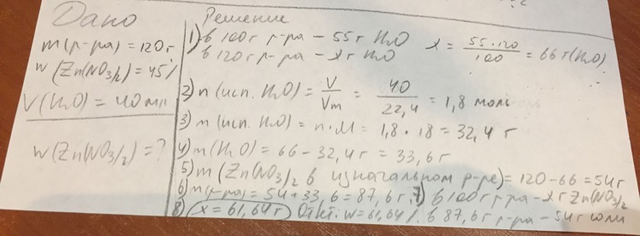 Дано
m(р-ра) = 120г
w(Zn(NO3)2) = 45%
V(H2O) = 40 мл
w(Zn(NO3)2) = ?
Решение
1) в 100г р-ра – 55г H2O
в 120г р-ра – xг H2O
x = 55·120 / 100 = 66г(H2O)
2) n(исп. H2O) = V/Vm = 40/22,4 = 1,8 моль
3) m(исп. H2O) = n·M = 1,8·18 = 32,4 г
4) m(H2O) = 66 – 32,4г = 33,6г
5) m(Zn(NO3)2 в изначальном р-ре) = 120-66 = 54г
6) m(р-ра) = 54+33,6 = 87,6г. 7) в 100г р-ра – xг Zn(NO3)2
8) x = 61,64г Ответ: w=61,64%. в 87,6г р-ра – 54г соли